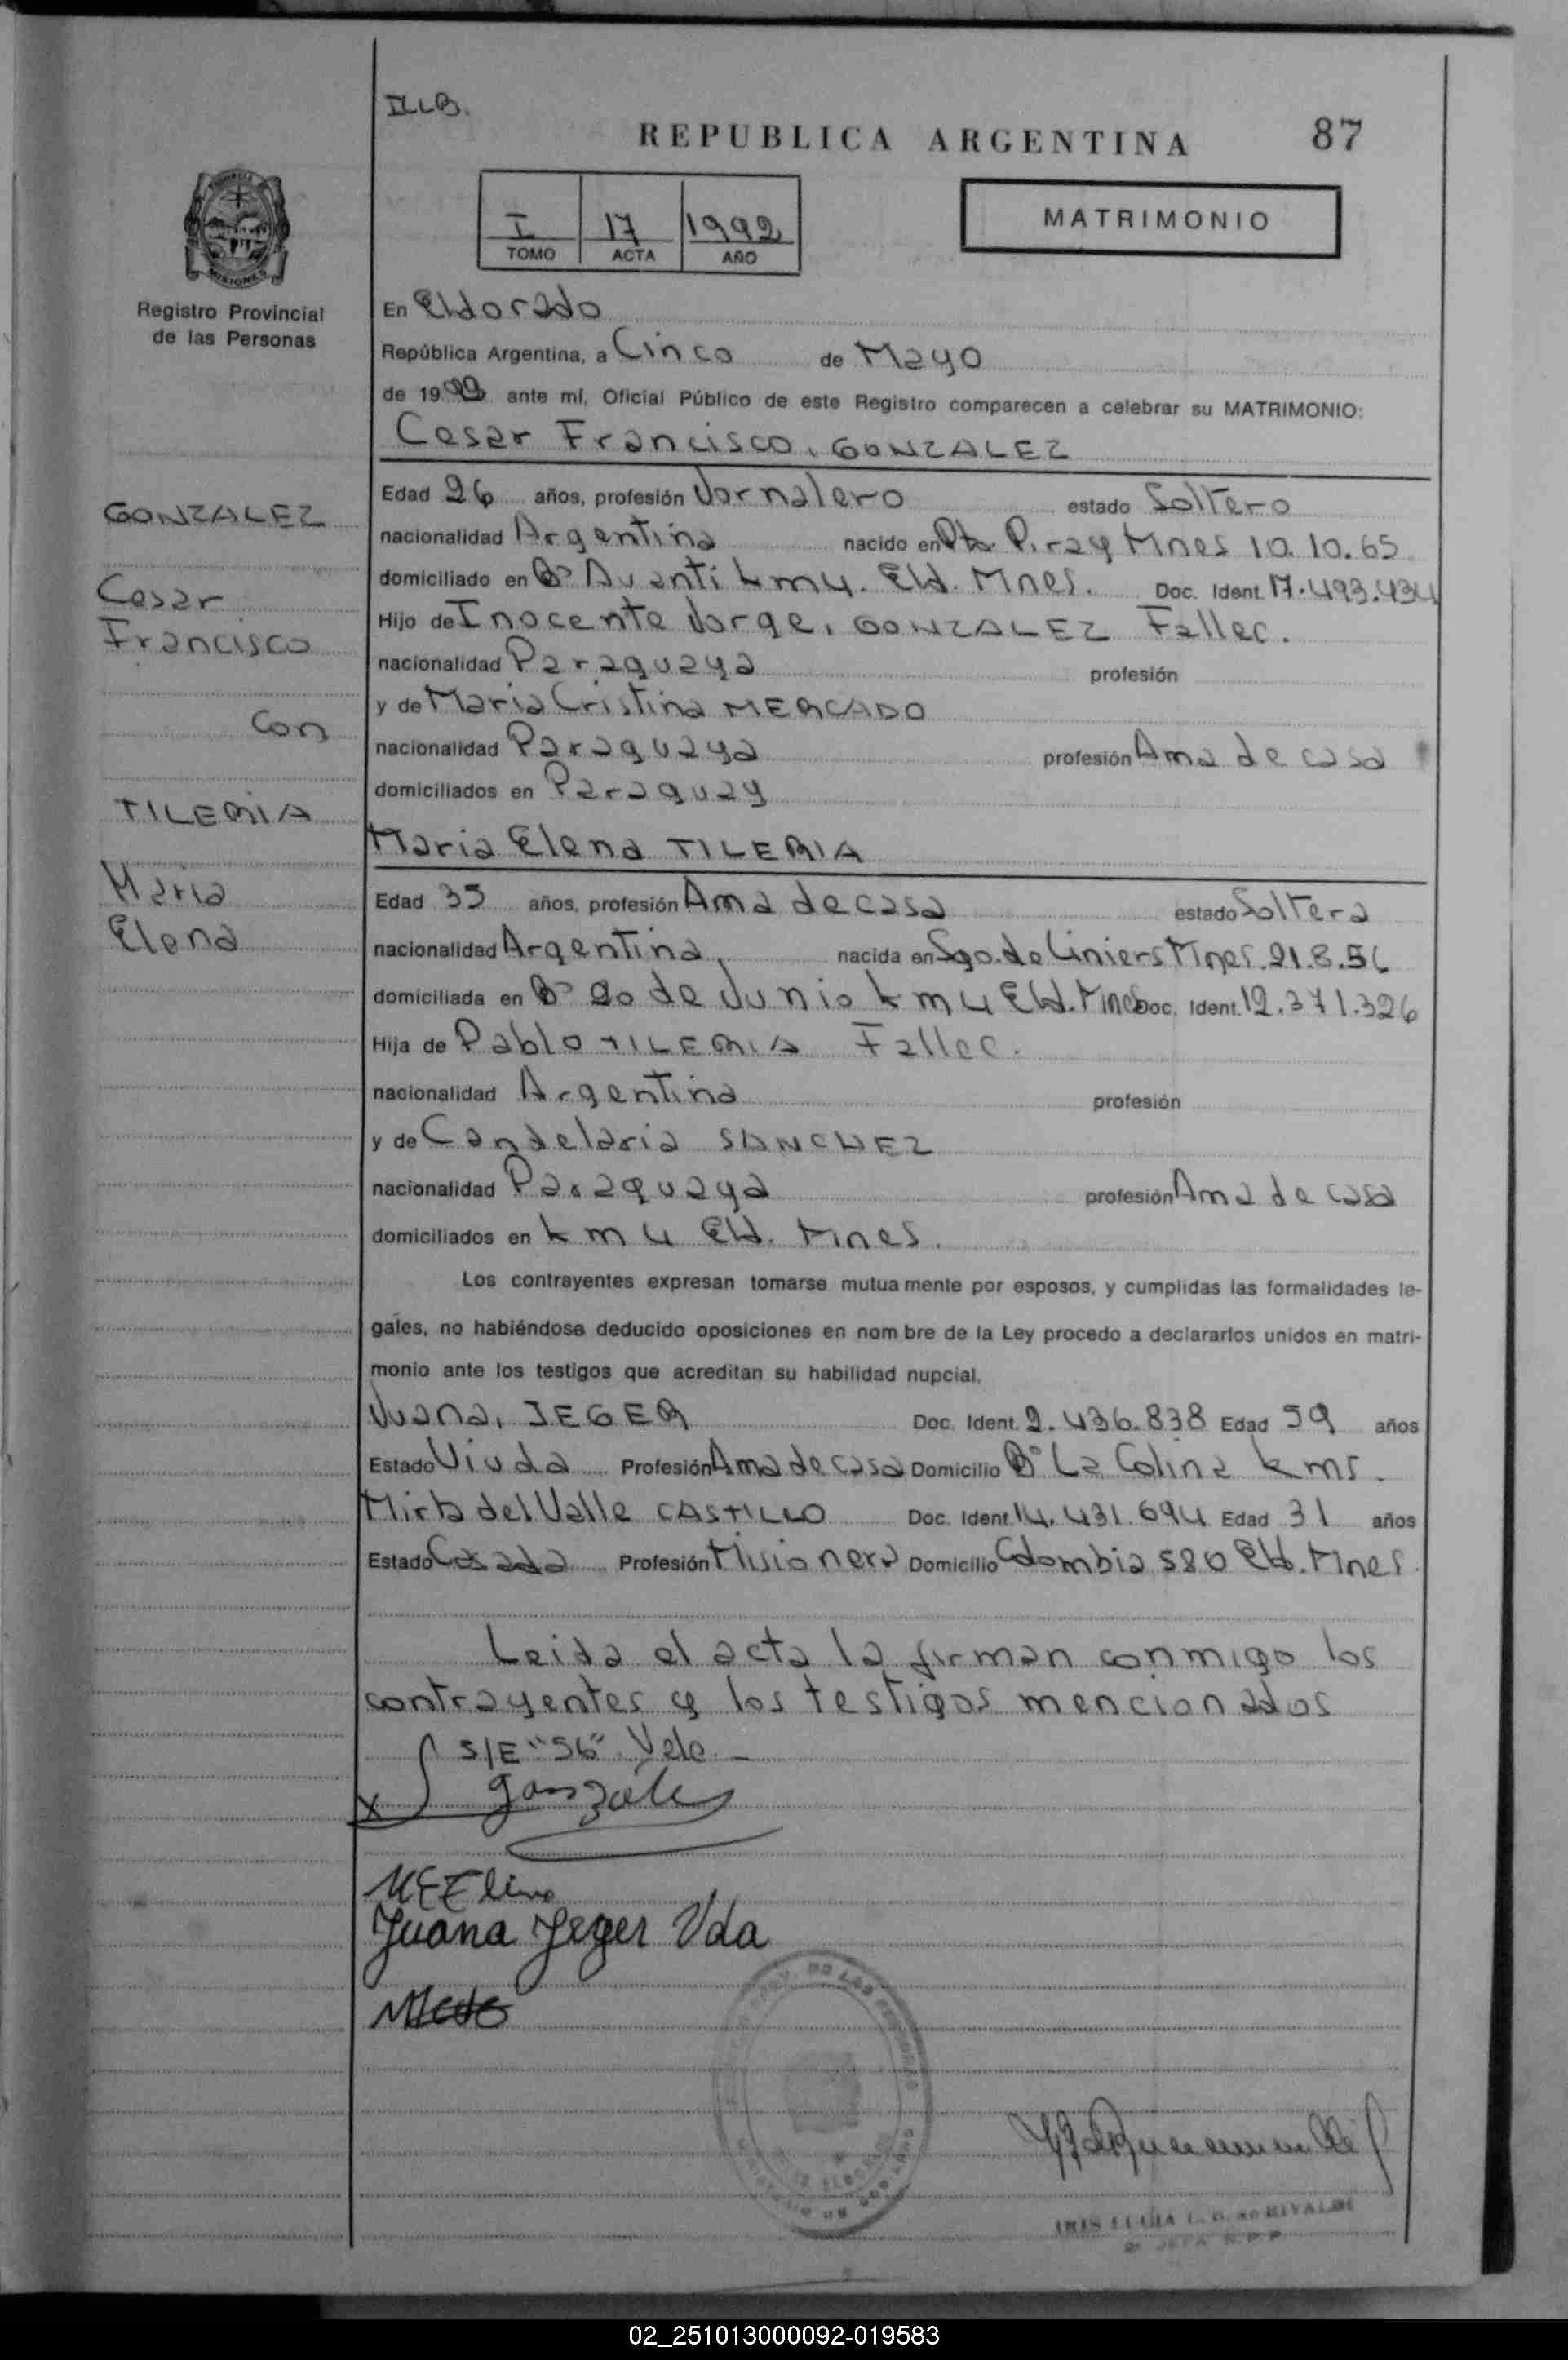 ILLB.
REPUBLICA ARGENTINA 87
I 17 1992
TOMO ACTA AÑO
MATRIMONIO
MISIONES
Registro Provincial
de las Personas
En Eldorado
República Argentina, a Cinco de Mayo
de 1992 ante mí, Oficial Público de este Registro comparecen a celebrar su MATRIMONIO:
Cesar Francisco, GONZALEZ
GONZALEZ
Cesar
Francisco
Con
TILERIA
Maria
Elena
Edad 26 años, profesión Jornalero estado Soltero
nacionalidad Argentina nacido en Pto. Piray Mnes 10.10.65
domiciliado en B° Avanti km 4. Eld. Mnes. Doc. Ident. 17.493.434
Hijo de Inocente Jorge, GONZALEZ Fallec.
nacionalidad Paraguaya profesión
y de Maria Cristina MERCADO
nacionalidad Paraguaya profesión Ama de casa
domiciliados en Paraguay
Maria Elena TILERIA
Edad 35 años, profesión Ama de casa estado Soltera
nacionalidad Argentina, nacida en Sgo. de Liniers Mnes. 21.8.56
domiciliada en B° 20 de Junio km 4 Eld. Mnes Doc. Ident. 12.371.326
Hija de Pablo TILERIA Fallec.
nacionalidad Argentina profesión
y de Candelaria SANCHEZ
nacionalidad Paraguaya profesión Ama de casa
domiciliados en km 4 Eld. Mnes.
Los contrayentes expresan tomarse mutua mente por esposos, y cumplidas las formalidades le-
gales, no habiéndose deducido oposiciones en nom bre de la Ley procedo a declararlos unidos en matri-
monio ante los testigos que acreditan su habilidad nupcial.
Juana, JEGER Doc. Ident. 2.436.838 Edad 59 años
Estado Viuda Profesión Ama de casa Domicilio B° La Colina kms.
Mirta del Valle CASTILLO Doc. Ident. 14.431.694 Edad 31 años
Estado Casada Profesión Misionera Domicilio Colombia 580 Eld. Mnes.
Leida el acta la firman conmigo los
contrayentes y los testigos mencionados
S/E "56" Vele.
X Gonzalez
Juana Jeger Vda
IRIS LUCIA L. B. de RIVALDI
2ª JEFA R.P.P
02_251013000092-019583